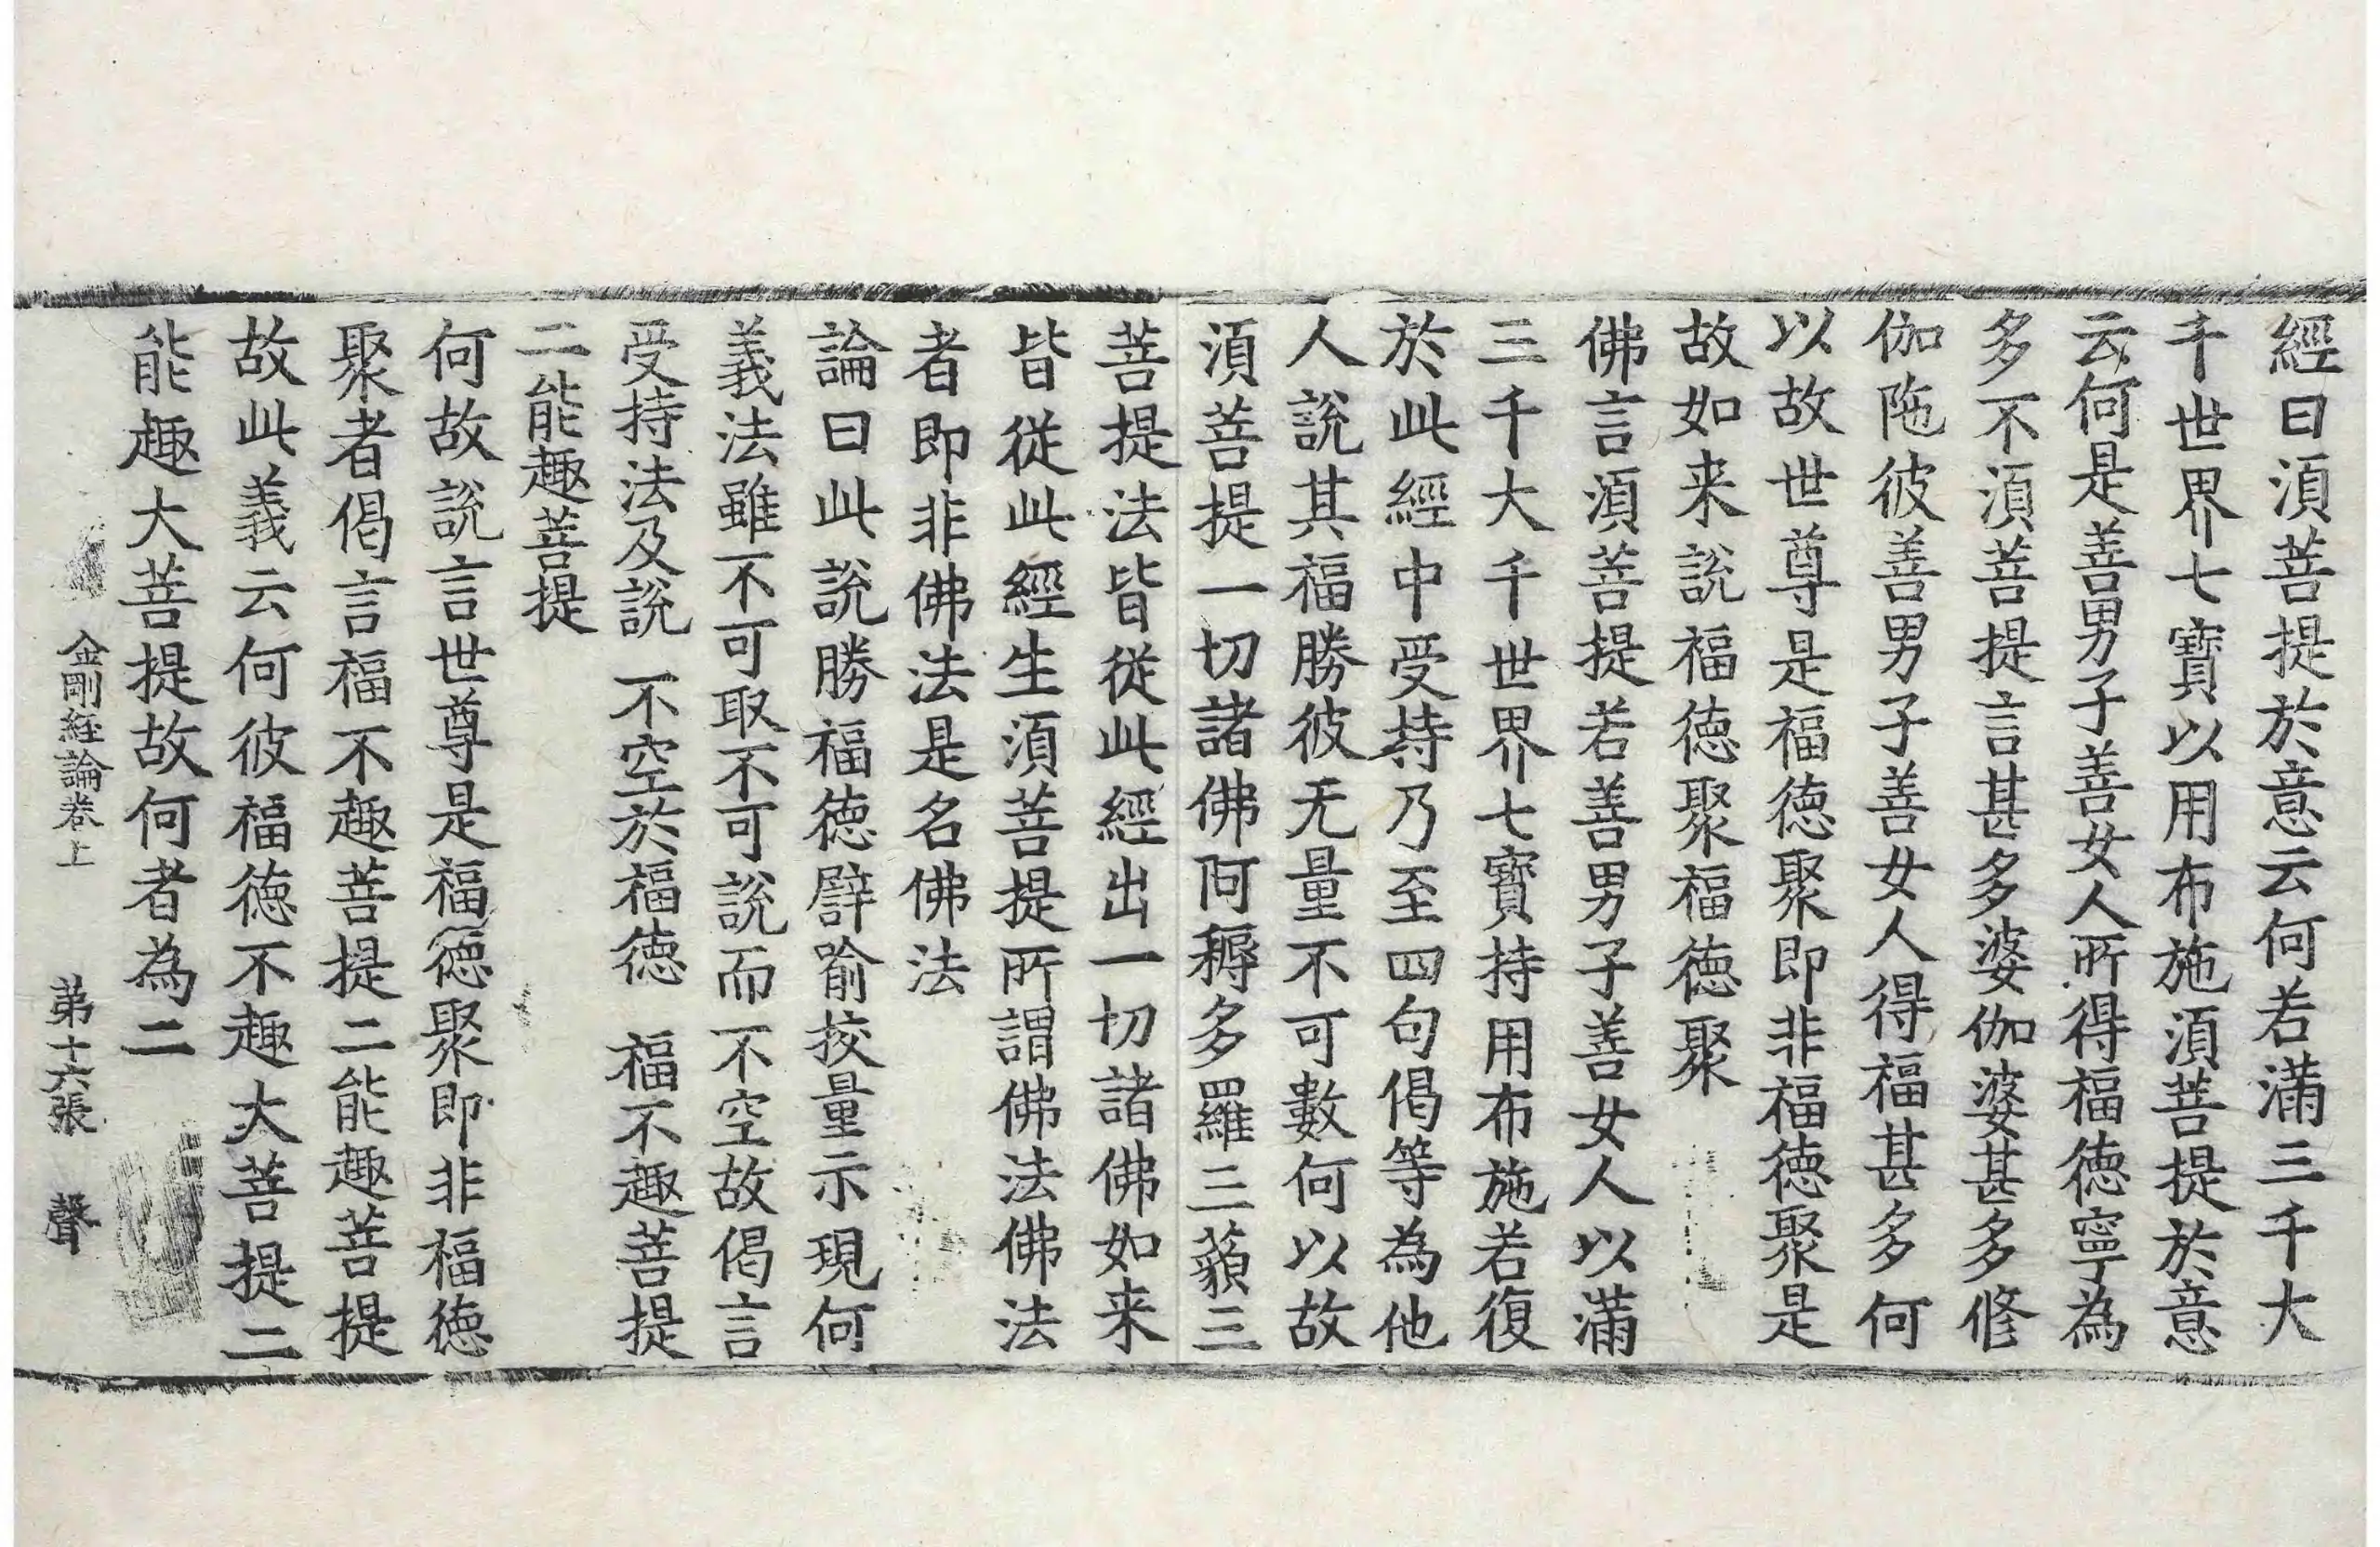 經曰須菩提於意云何若滿三千大
千世界七寶以用布施須菩提於意
云何是善男子善女人所得福德寧為
多不須菩提言甚多婆伽婆甚多修
伽陁彼善男子善女人得福甚多何
以故世尊是福德聚即非福德聚是
故如来說福德聚福德聚
佛言須菩提若善男子善女人以滿
三千大千世界七寶持用布施若復
於此經中受持乃至四句偈等為他
人說其福勝彼无量不可數何以故
須菩提一切諸佛阿耨多羅三藐三
菩提法皆從此經出一切諸佛如来
皆從此經生須菩提所謂佛法佛法
者即非佛法是名佛法
論曰此說勝福德譬喻挍量示現何
義法雖不可取不可說而不空故偈言
受持法及說 不空於福德 福不趣菩提
二能趣菩提
何故說言世尊是福德聚即非福德
聚者偈言福不趣菩提二能趣菩提
故此義云何彼福德不趣大菩提二
能趣大菩提故何者為二
金剛経論卷上 第十六張 聲